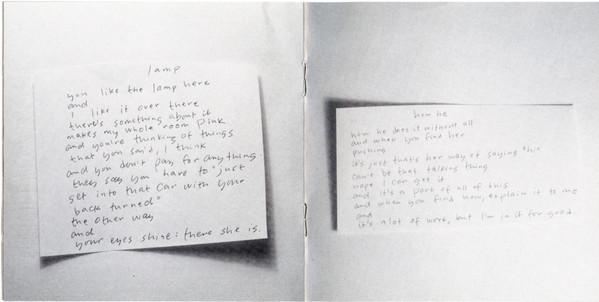 lamp
you like the lamp here
and
I like it over there
there's something about it
makes my whole room pink
and you're thinking of things
that you said, I think
and you don't pay for anything
they say you have to "just
get into that car with your
back turned"
the other way
and
your eyes shine: there she is.
how he
how he does it without all
and when you find her
pushing
it's just that's her way of saying "hi"
can't be that talking thing
hope I can get it
and it's a part of all of this
and when you find how, explain it to me
and
it's a lot of work, but I'm in it for good